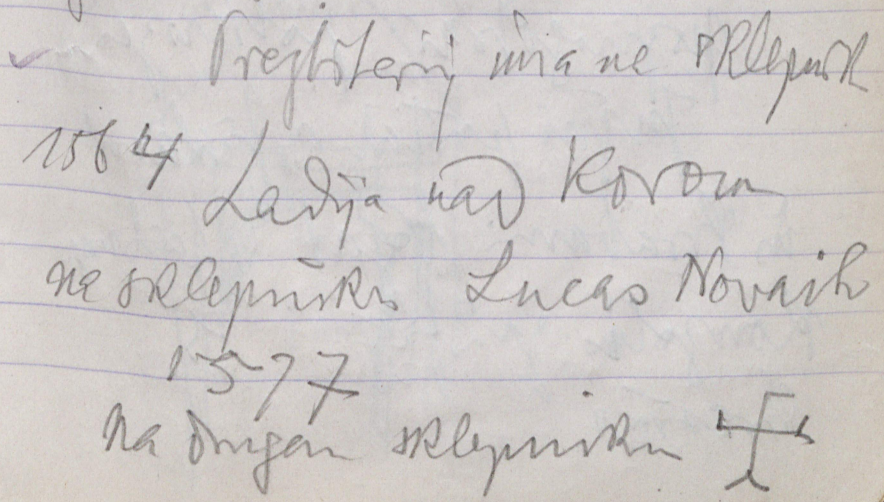 Prezbiterij ima ne sklepnik
1564 Ladija nad Korom
na sklepniku Lucas Novaih
1577
na drugem sklepniku